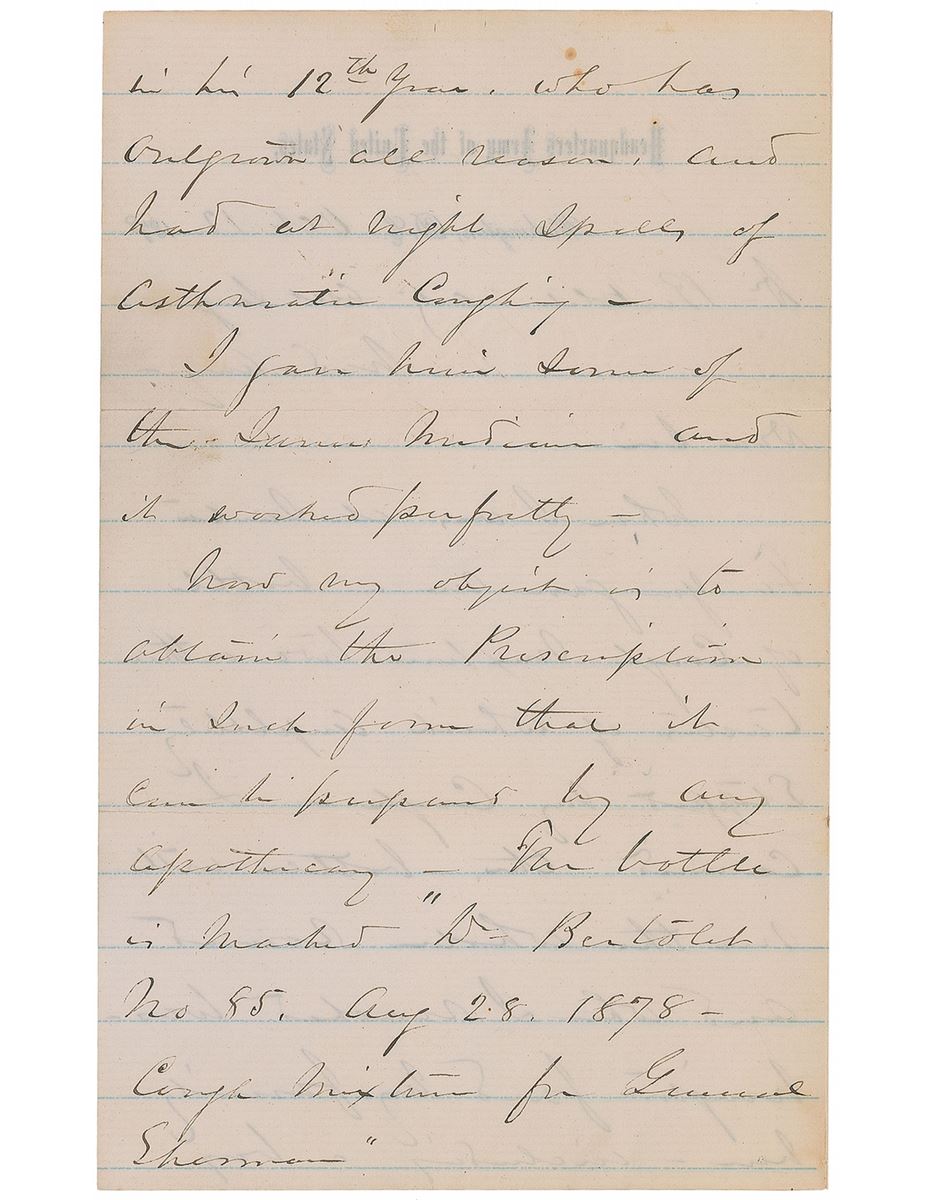 in his 12th Year. who has
outgrown all reason, and
had at night Spells of
Asthmatic Coughing –
I gave him some of
the same Medicine and
it worked perfectly –
Now my object is to
obtain the Prescription
in such form that it
can be prepared by any
apothecary – The bottle
is marked "Dr Bertolet
No 85. Aug 28. 1878 –
Cough Mixture for General
Sherman"
Headquarters Army of the United States,